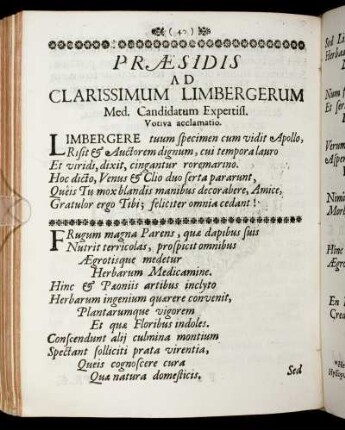 ( 40 )
PRÆSIDIS
AD
CLARISSIMUM LIMBERGERUM
Med. Candidatum Expertiſſ.
Votiva acclamatio.
LIMBERGERE tuum specimen cum vidit Apollo,
Riſit & Auctorem dignum, cui tempora lauro
Et viridi, dixit, cingantur roremarino.
Hoc dicto, Venus & Clio duo ſerta pararunt,
Queis Tu mox blandis manibus decorabere, Amice,
Gratulor ergo Tibi; feliciter omnia cedant!
FRugum magna Parens, quæ dapibus ſuis
Nutrit terricolas, proſpicit omnibus
Ægrotisque medetur
Herbarum Medicamine.
Hinc & Pæoniis artibus inclyto
Herbarum ingenium quærere convenit,
Plantarumque vigorem
Et quæ Floribus indoles.
Conſcendunt alij culmina montium
Spectant ſolliciti prata virentia,
Queis cognoſcere cura
Quæ natura domeſticis,
Sed
Sed Li
Herbas
Num f
Et ſer
Verum
Æger
Nimi
Morb
Hinc
Ægro
En
Crea